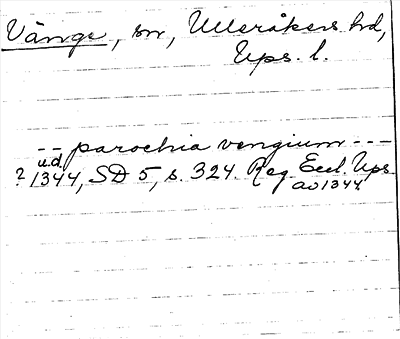 Vänge, sn, Ulleråkers hd,
Ups. l.
-- parochia vengium ---
u.d.
? 1344, SD 5, s. 324. Reg. Eccl. Ups.
av 1344.